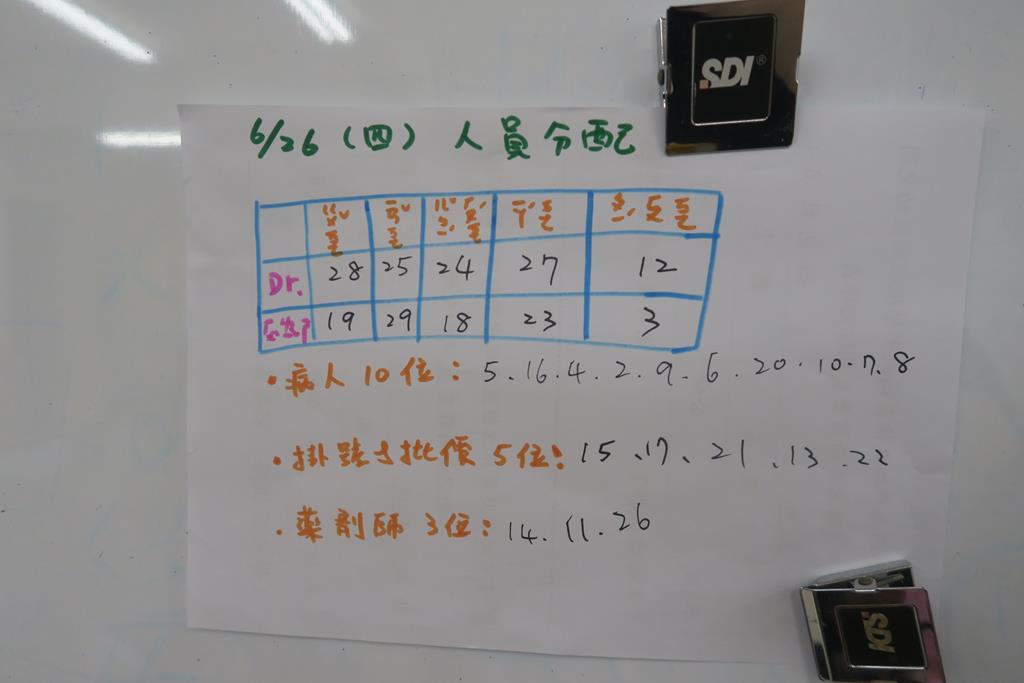 SDI®
6/26（四）人員分配
Dr. 28 25 24 27 12
19 29 18 23 3
・病人10位：5、16、4、2、9、6、20、10、7、8
・掛號與批價5位：15、17、21、13、22
・藥劑師3位：14、11、26
SDI